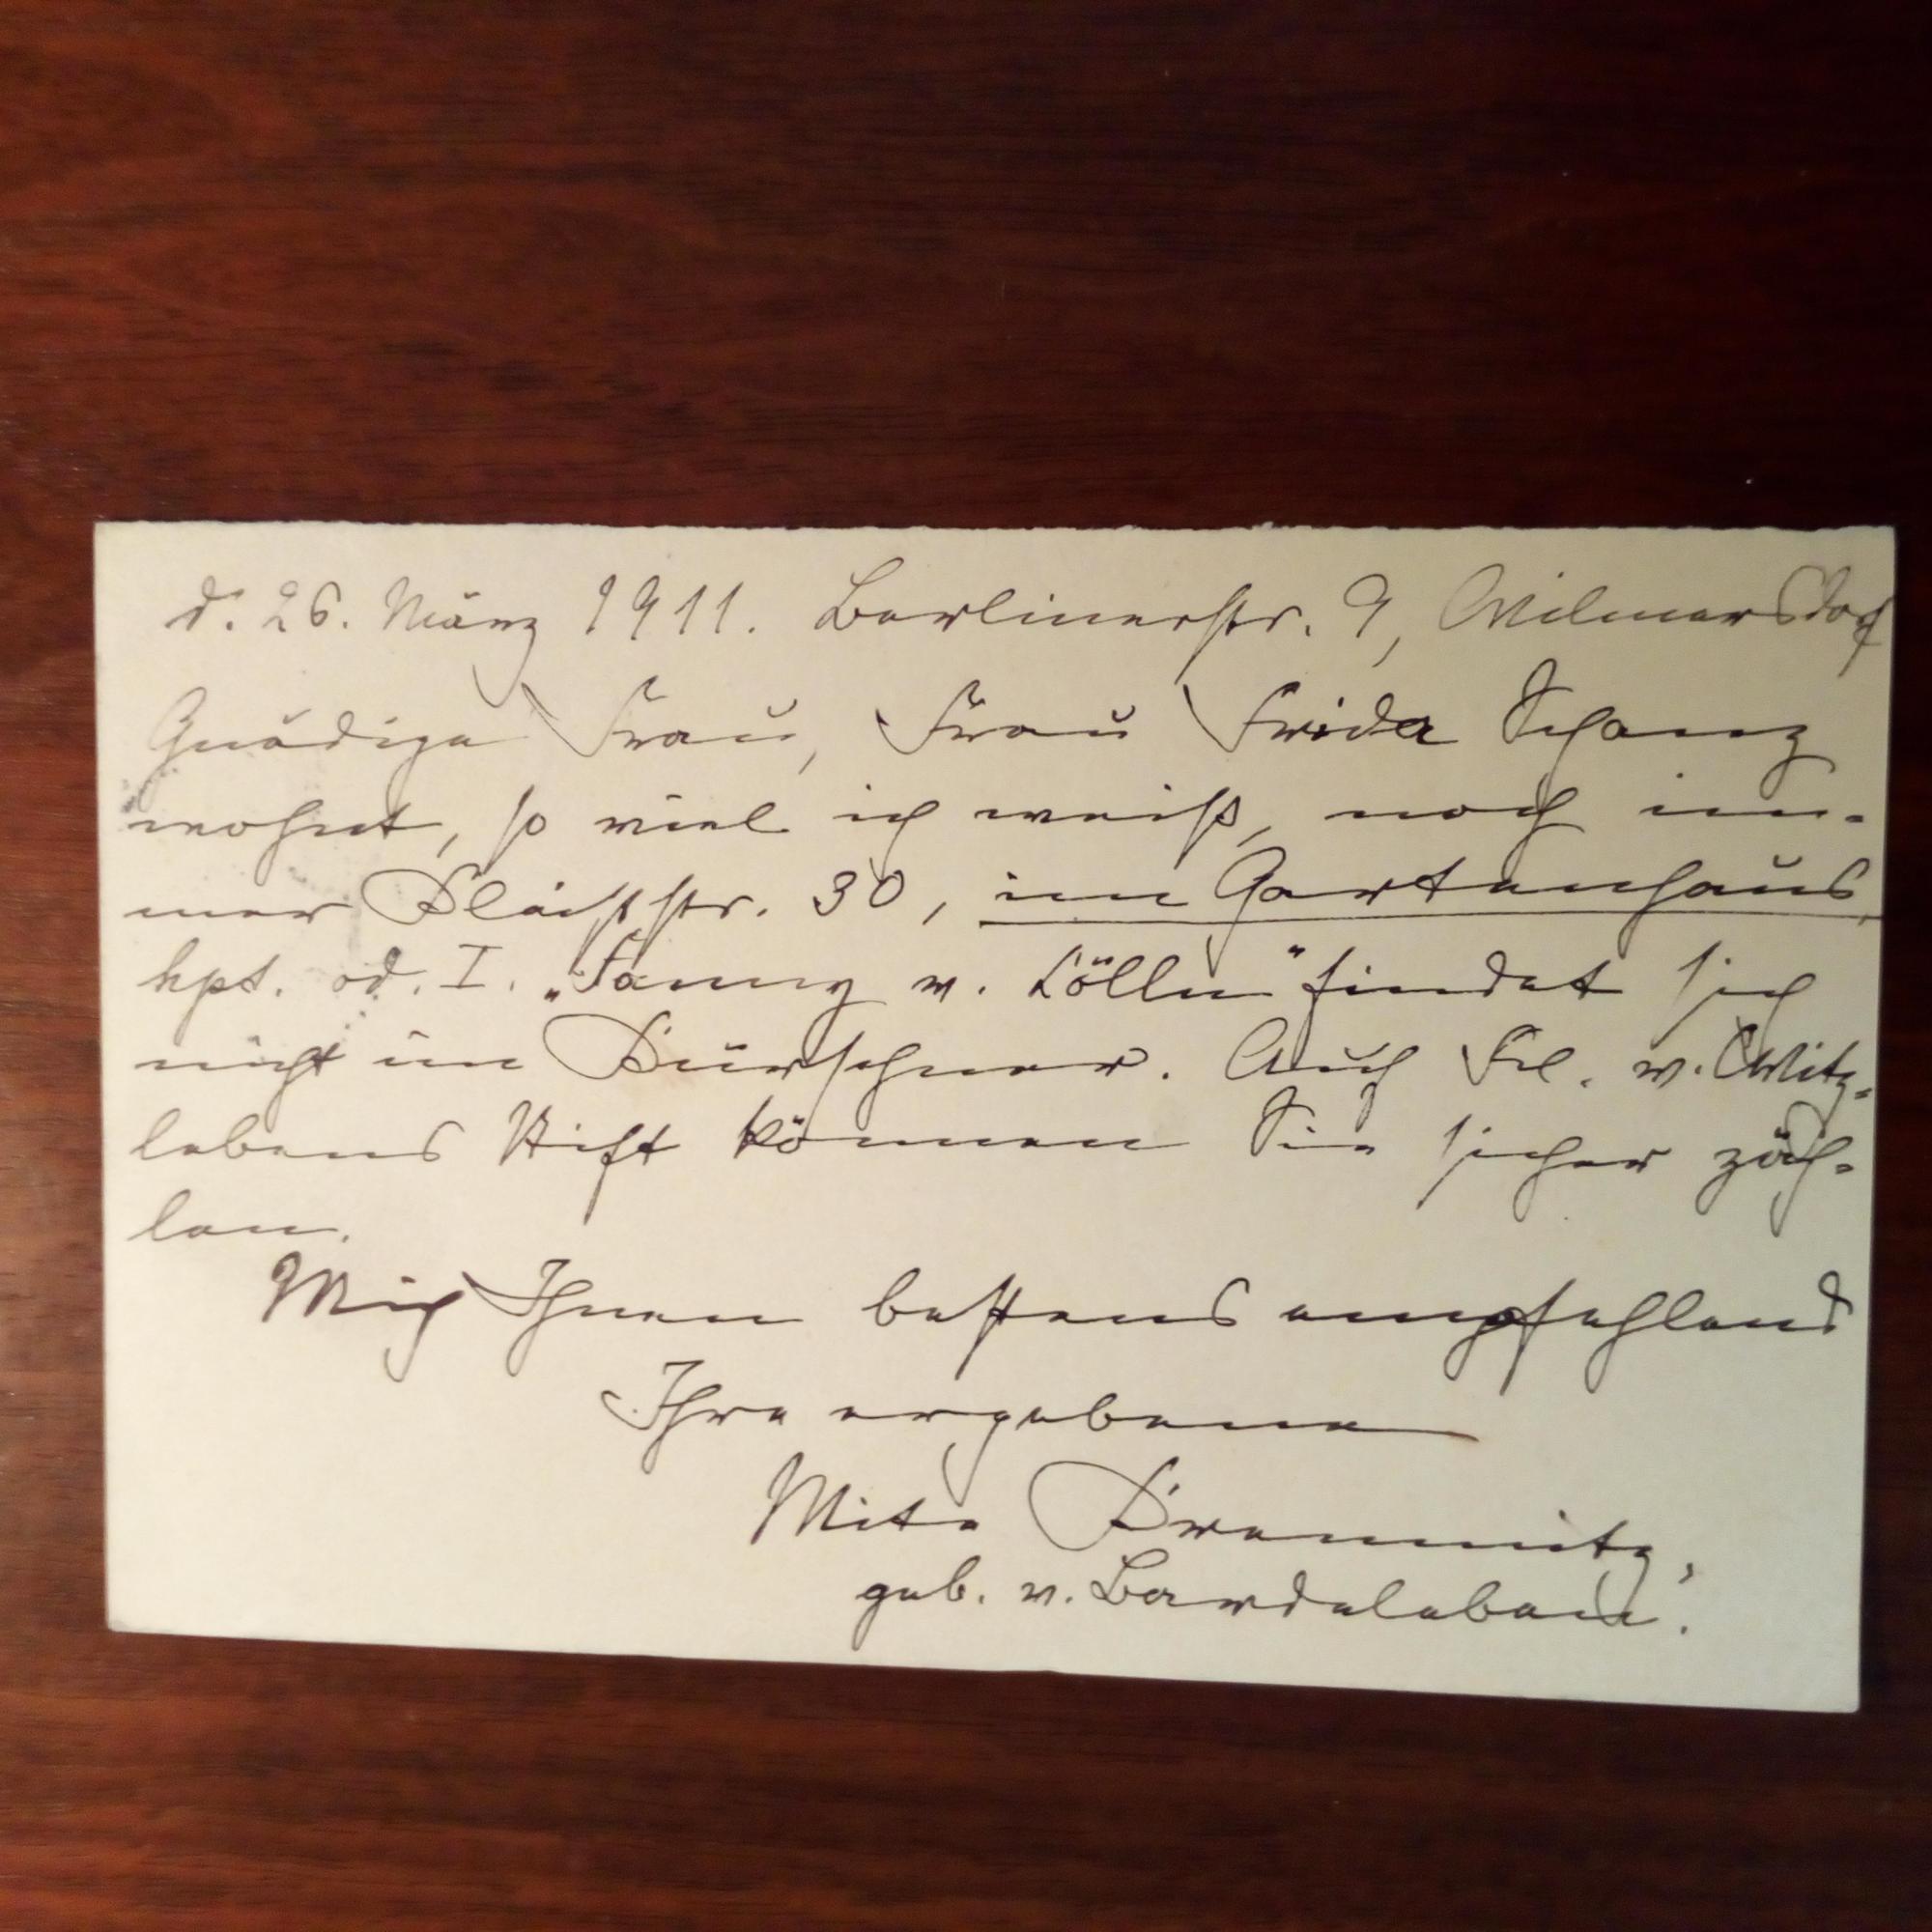 d. 26. März 1911. Berlinerstr. 9, Wilmersdorf
Gnädige Frau, Frau Frida Schanz
wohnt, so viel ich weiß, noch im-
mer Kleiststr. 30, im Gartenhaus,
hpt. od. I. „Fanny v. Cölln" findet sich
nicht im Kürschner. Auch Frl. v. Witz-
lebens Stift können Sie sicher zäh-
len.
Mich Ihnen bestens empfehlend
Ihre ergebene
Mite Kremnitz,
geb. v. Bardeleben.